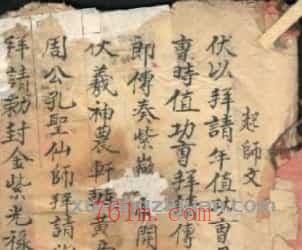 起師文
伏以拜請年值
會時值功曹拜請傳
即傳奏紫微
伏羲神農軒轅黃
周公孔聖仙師拜請
拜請勅封金紫光祿
761m.com